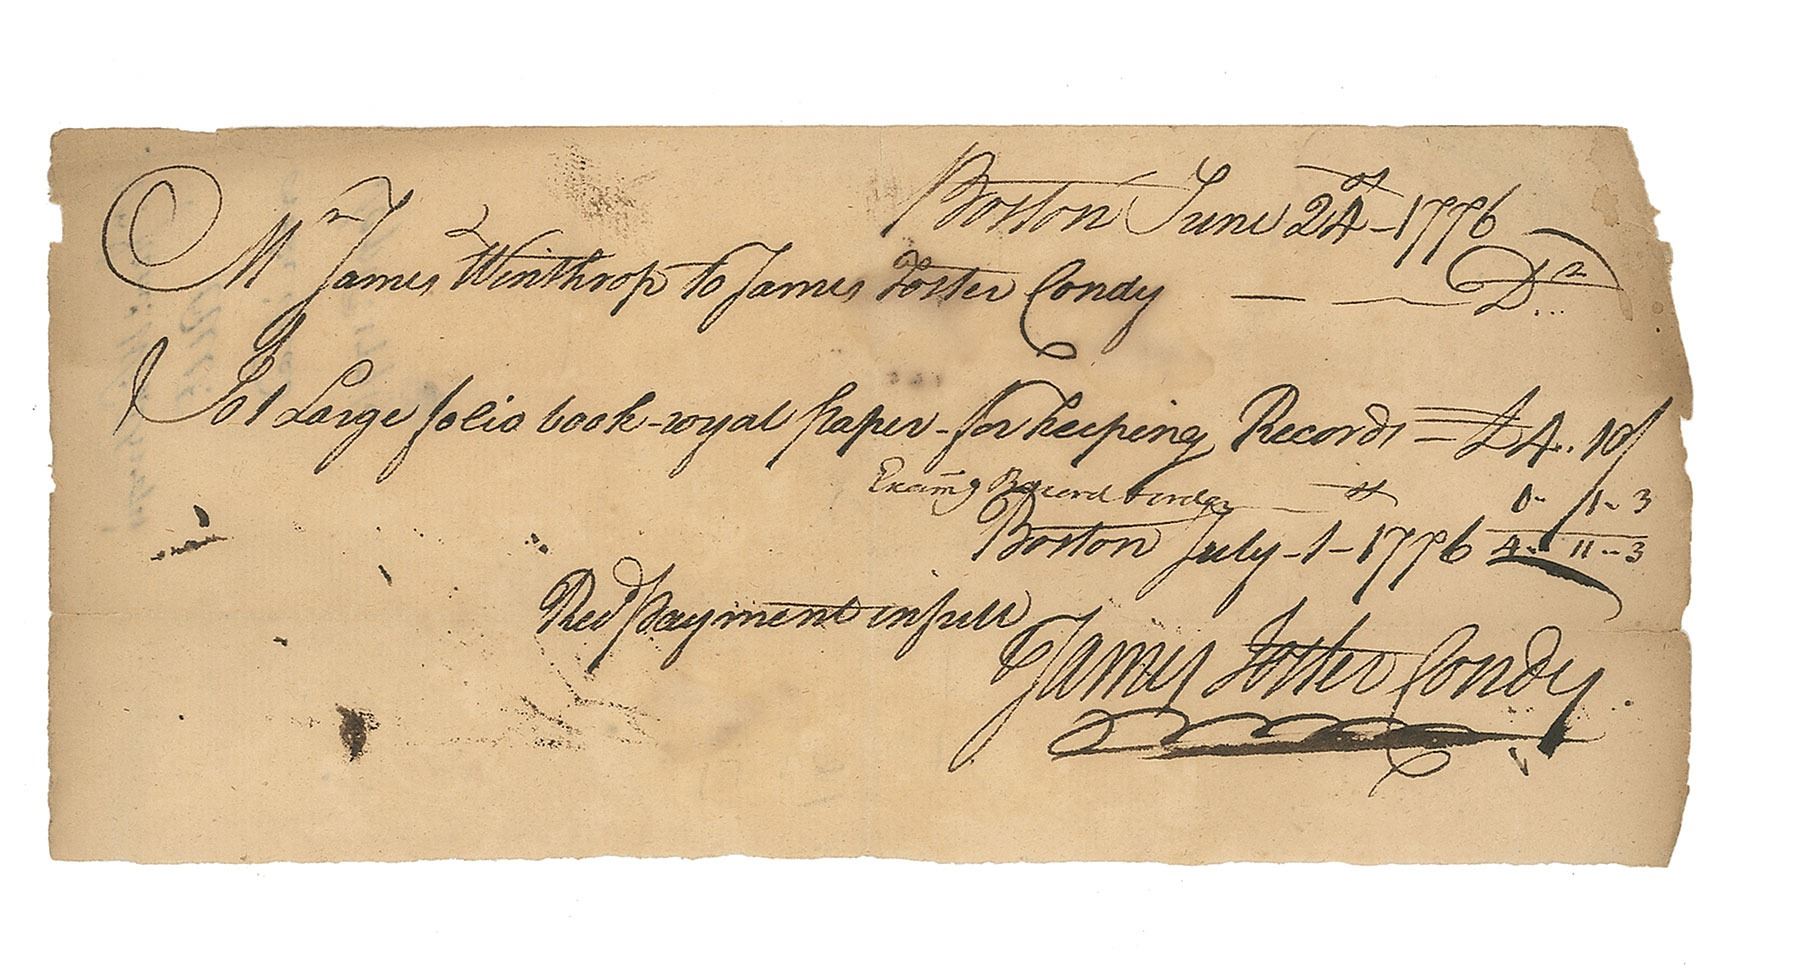 Boston June 24th - 1776
Mr James Winthrop to James Foster Condy — — Dr
To 1 Large folio book - royal paper - for keeping Records = £4.. 10/
Examg Record 0 - 1 - 3
Boston July - 1 - 1776 4 - 11 - 3
Recd payment in full
James Foster Condy